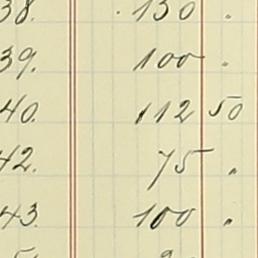 38. 130 .
39. 100 .
40. 112 50
42. 75 "
43. 100 "